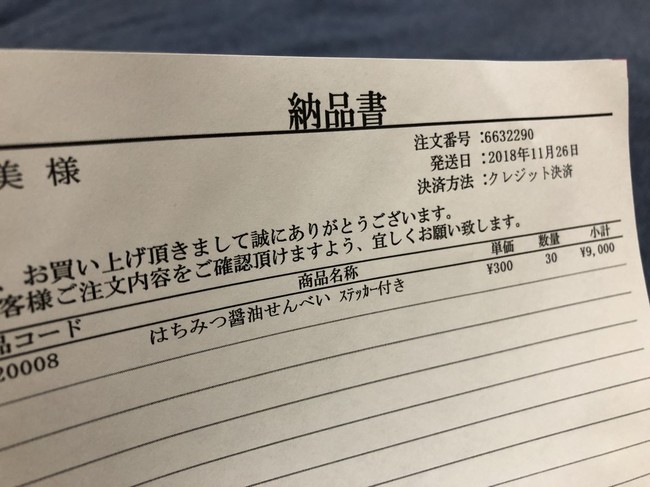 納品書
注文番号:6632290
発送日:2018年11月26日
決済方法:クレジット決済
美 様
、お買い上げ頂きまして誠にありがとうございます。
客様ご注文内容をご確認頂けますよう、宜しくお願い致します。
品コード 商品名称 単価 数量 小計
20008 はちみつ醤油せんべい ｽﾃｯｶｰ付き ¥300 30 ¥9,000